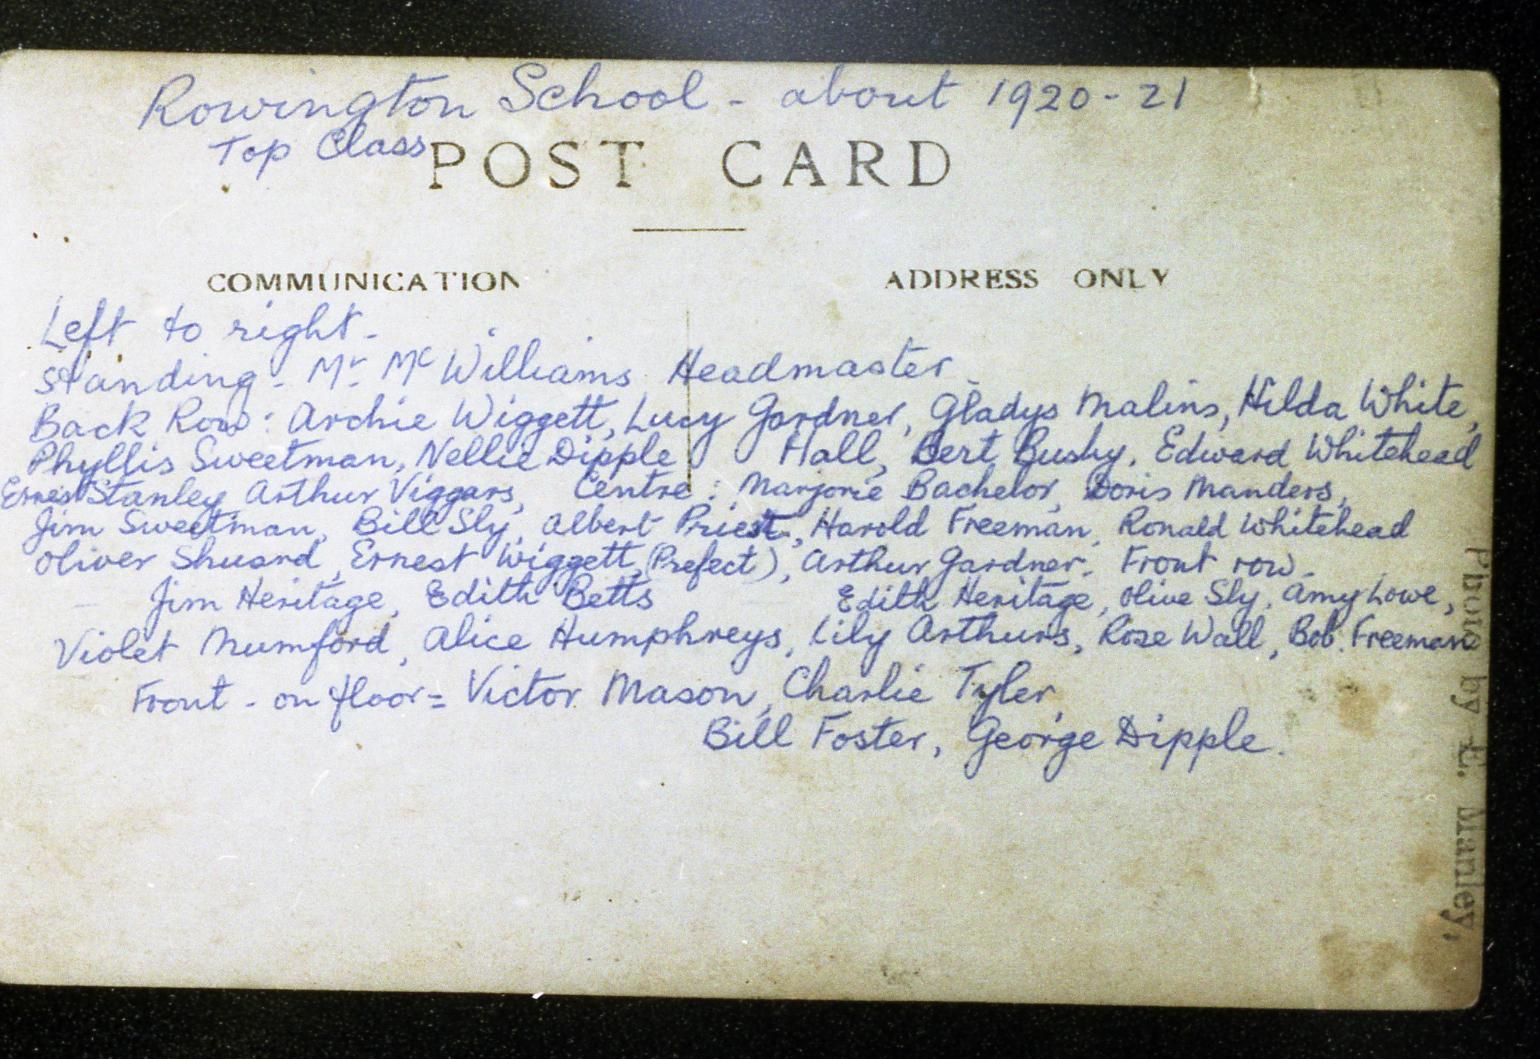 Rowington School - about 1920-21
Top Class
POST CARD
COMMUNICATION
ADDRESS ONLY
Left to right -
Standing - Mr. Mc Williams Headmaster -
Back Row: Archie Wiggett, Lucy Gardner, Gladys Malins, Hilda White,
Phyllis Sweetman, Nellie Dipple Hall, Bert Busby, Edward Whitehead
Ernest Stanley Arthur Viggars, Centre: Marjorie Bachelor, Doris Manders,
Jim Sweetman, Bill Sly, Albert Priest, Harold Freeman, Ronald Whitehead
Oliver Shuard, Ernest Wiggett, (Prefect), Arthur Gardner. Front row -
Jim Heritage, Edith Betts Edith Heritage, Olive Sly, Amy Lowe,
Violet Mumford, Alice Humphreys, Lily Arthurs, Rose Wall, Bob. Freeman
Front - on floor = Victor Mason, Charlie Tyler,
Bill Foster, George Dipple.
Photo by E. Manley,